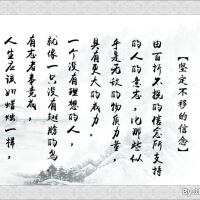 【坚定不移的信念】
由百折不挠的信念所支持
的人的意志，比那些似
乎是无敌的物质力量，
具有更大的威力。
一个没有理想的人，
就像一只没有翅膀的鸟
有志者事竟成，
人生应该如蜡烛一样，